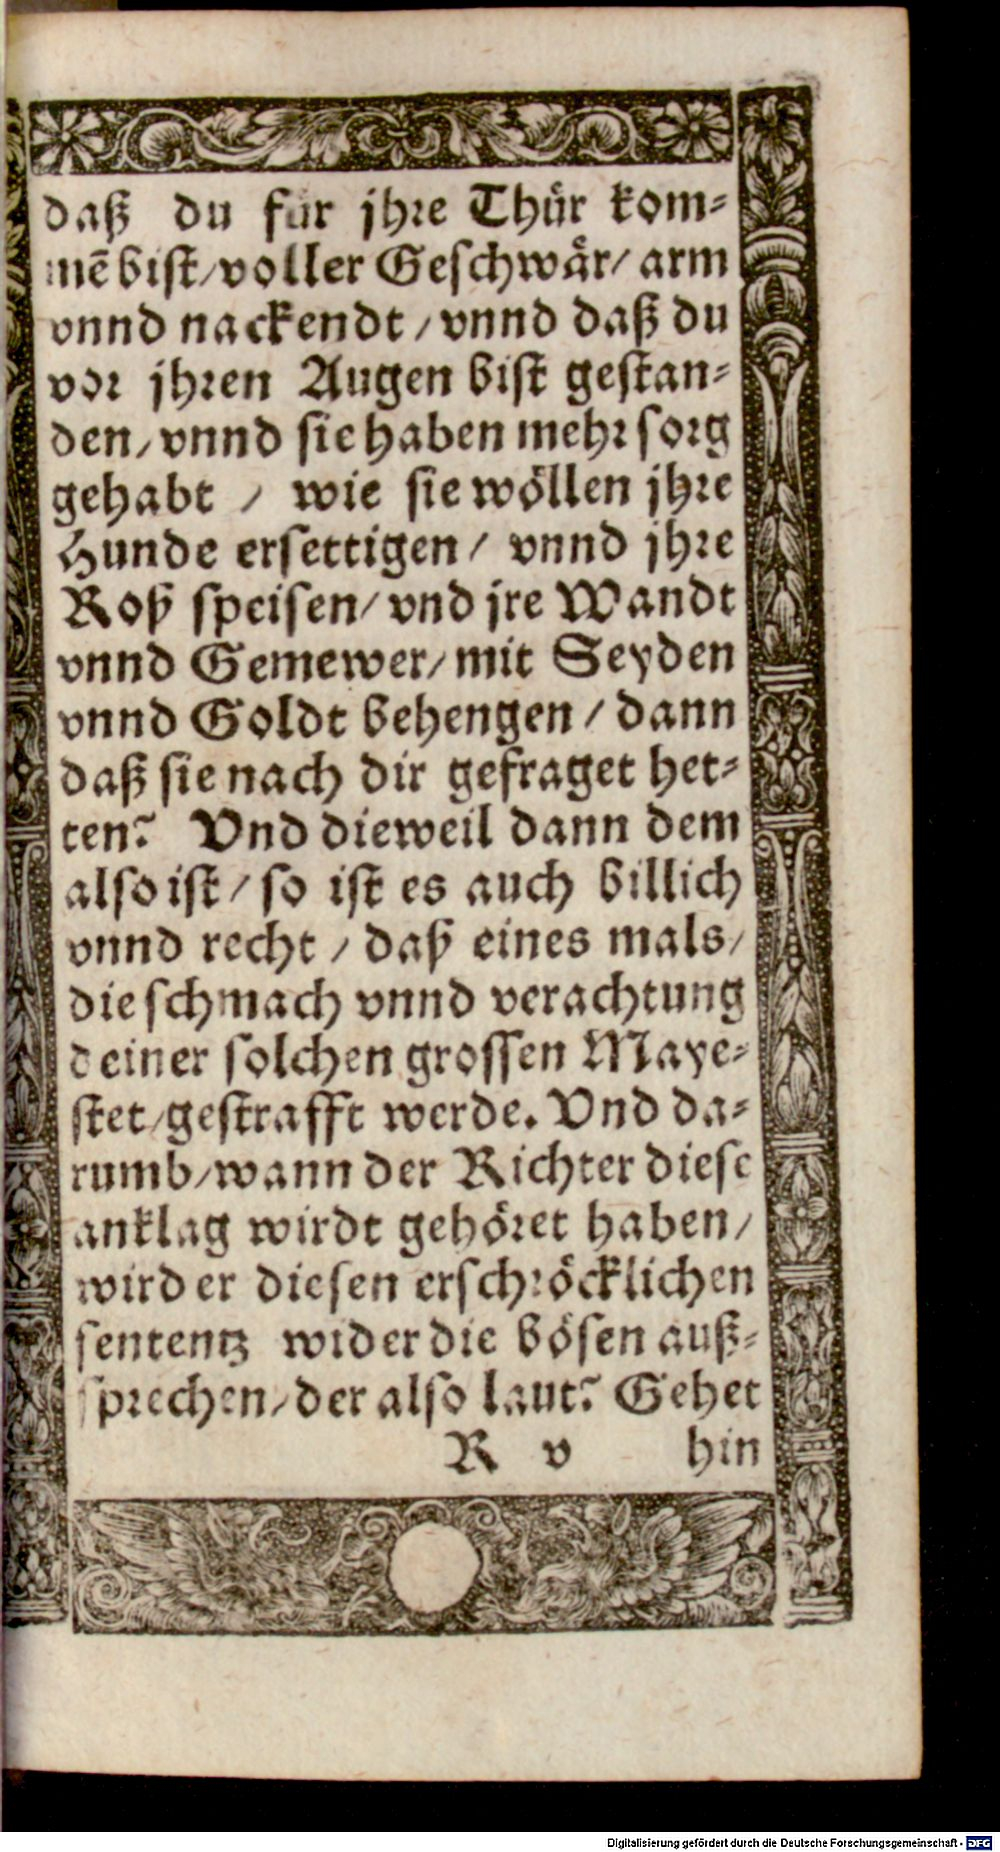 daß du für jhre Thür kom-
mẽ bist/ voller Geschwär/ arm
vnnd nackendt / vnnd daß du
vor jhren Augen bist gestan-
den/ vnnd sie haben mehr sorg
gehabt / wie sie wöllen jhre
Hunde ersettigen/ vnnd jhre
Roß speisen/ vnd jre Wandt
vnnd Gemewer/ mit Seyden
vnnd Goldt behengen / dann
daß sie nach dir gefraget het-
ten? Vnd dieweil dann dem
also ist / so ist es auch billich
vnnd recht / daß eines mals/
die schmach vnnd verachtung
deiner solchen grossen Maye-
stet/ gestrafft werde. Vnd da-
rumb/ wann der Richter diese
anklag wirdt gehöret haben/
wird er diesen erschröcklichen
sententz wider die bösen auß-
sprechen/ der also laut? Gehet
R v hin
Digitalisierung gefördert durch die Deutsche Forschungsgemeinschaft - DFG